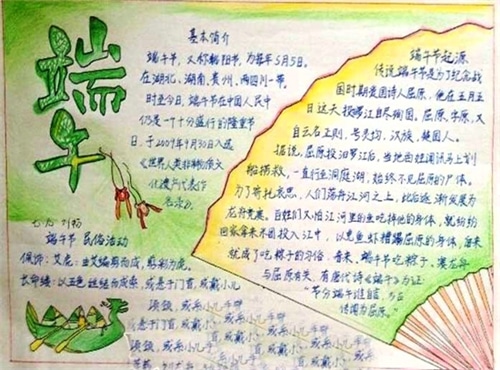 端午
基本简介
端午节，又称端阳节，为每年5月5日。
在湖北、湖南、贵州、四川一带，
时至今日，端午节在中国人民中
仍是一个十分盛行的隆重节
日，于2009年9月30日入选
《世界人类非物质文
化遗产代表作
名录》。
端午节 民俗活动
佩饰：艾虎：由艾编剪而成，剪彩为虎。
长命缕：以五色丝结而成索，或悬于门首，或戴小儿
项颈，或系小儿手臂
或悬于门首，或戴小
项颈，或系小儿手
端午节起源
传说端午节是为了纪念战
国时期楚国诗人屈原，他在五月五
日这天投汨罗江自尽殉国。屈原，字原，又
自云名正则，号灵均，汉族，楚国人。
据说，屈原投汨罗江后，当地百姓闻讯马上划
船捞救，一直行至洞庭湖，始终不见屈原的尸体。
为了寄托哀思，人们荡舟江河之上，此后逐渐发展为
龙舟竞赛。百姓们又怕江河里的鱼吃掉他的身体，就纷纷
回家拿来米团投入江中，以免鱼虾糟蹋屈原的身体，后来
就成了吃粽子的习俗。看来，端午节吃粽子、赛龙舟
与屈原有关，有唐代诗《端午》为证
“节分端午谁自言，万古
传闻为屈原。”